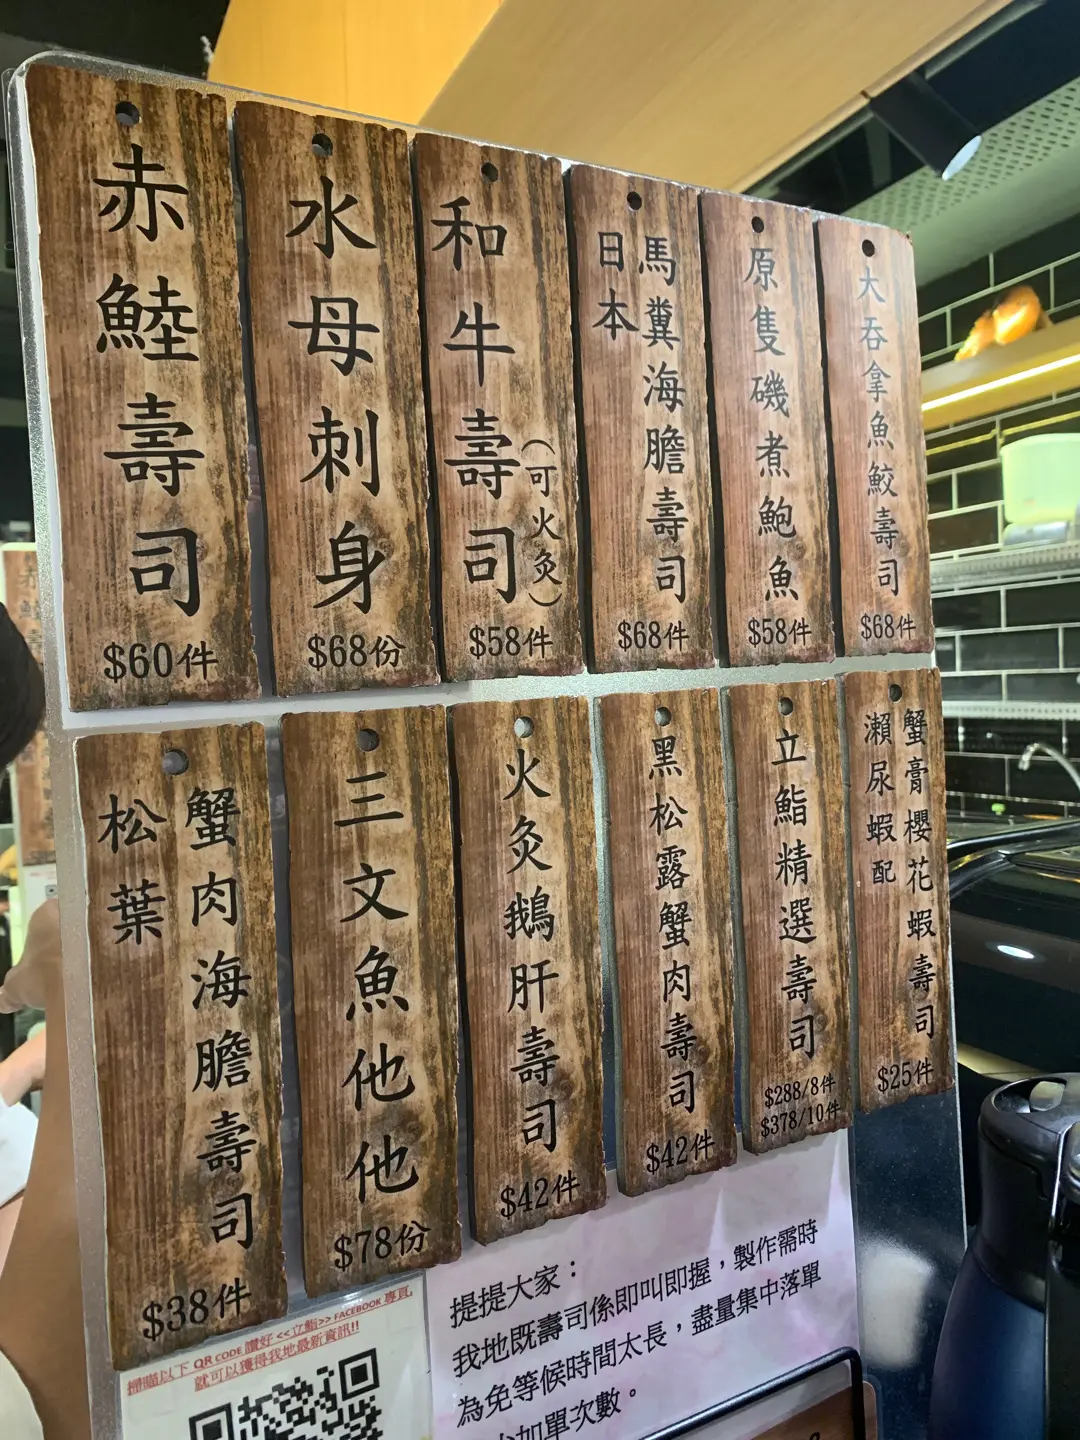 赤鯥壽司
$60件
水母刺身
$68份
和牛壽司
（可火灸）
$58件
日本
馬糞海膽壽司
$68件
原隻磯煮鮑魚
$58件
大吞拿魚鮫壽司
$68件
松葉
蟹肉海膽壽司
$38件
三文魚他他
$78份
火灸鵝肝壽司
$42件
黑松露蟹肉壽司
$42件
立鮨精選壽司
$288/8件
$378/10件
瀨尿蝦配
蟹膏櫻花蝦壽司
$25件
掃瞄以下 QR CODE 讚好 <<立鮨>> FACEBOOK 專頁
就可以獲得我地最新資訊!!
提提大家：
我地既壽司係即叫即握，製作需時
為免等候時間太長，盡量集中落單
加單次數。